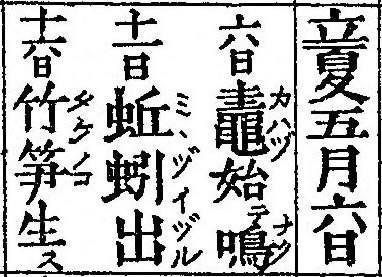 立夏五月六日
六日鼃始テ鳴
カハヅ ナク
十一日蚯蚓出
ミヽヅイヅル
十六日竹笋生ス
タケノコ